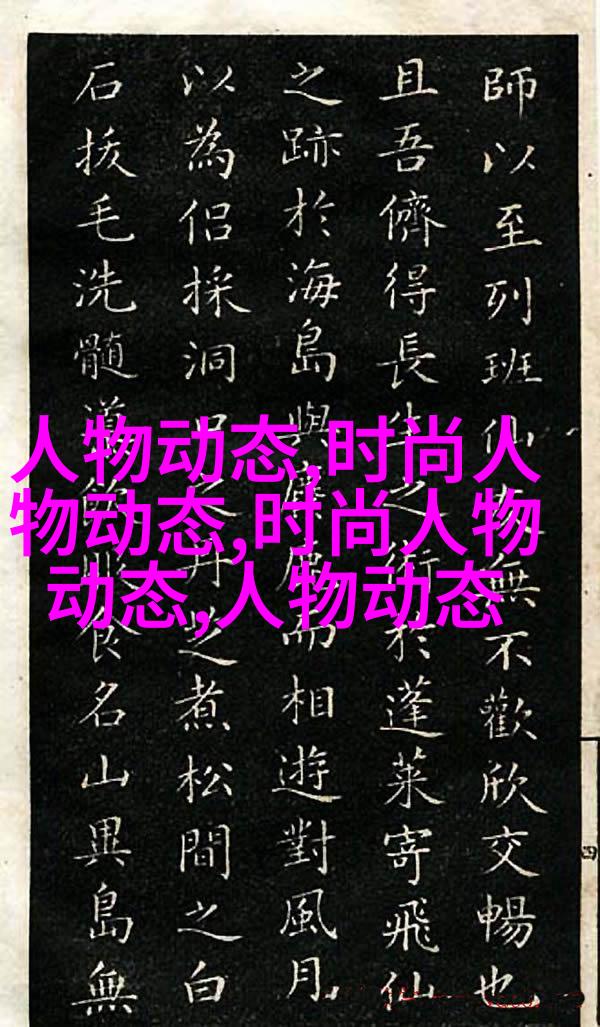 師以至列班仙無不歡欣交暢也
且吾儕得長生之術於蓬萊寄飛仙
之跡於海島與而相遊對風月
以為侶採洞口之丹芝煮松間之白
石拔毛洗髓食名山異島無
人物动态,时尚人
物动态,时尚人物
动态,人物动态
四